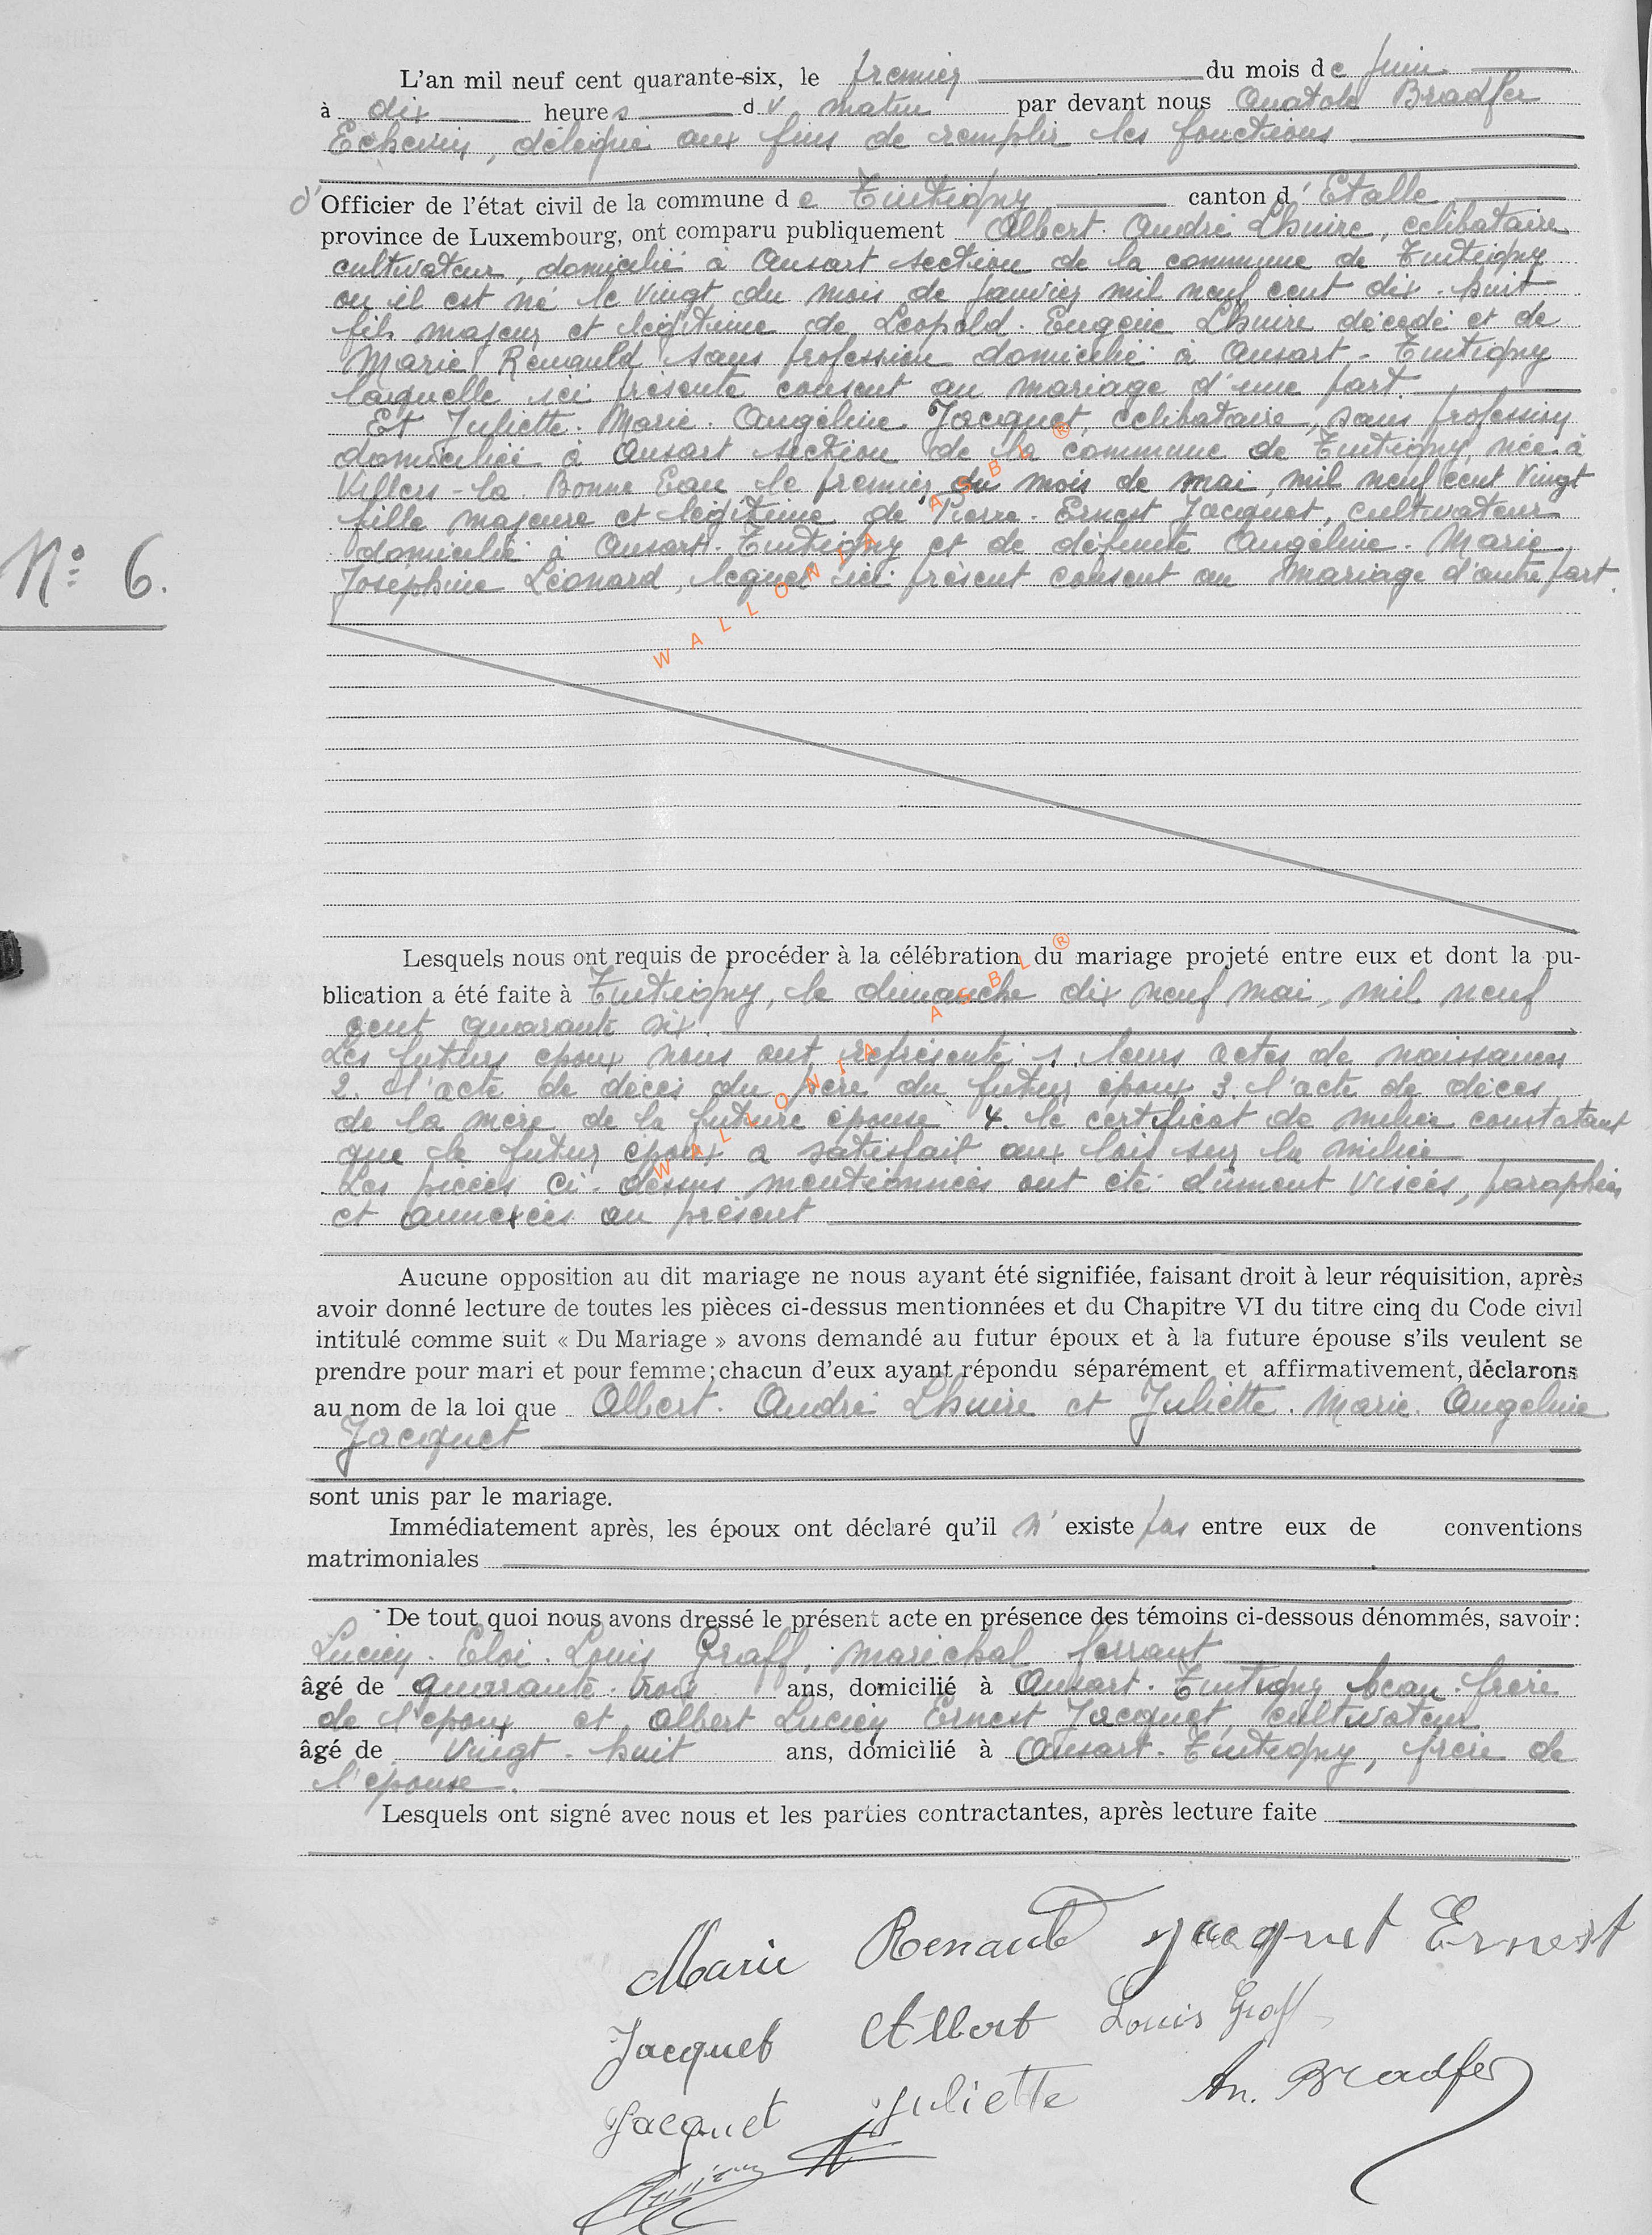 L'an mil neuf cent quarante-six, le premier du mois de juin
à dix heures du matin par devant nous Anatole Bradfer
Echevin, délégué aux fins de remplir les fonctions
d'Officier de l'état civil de la commune de Tintigny canton d'Etalle
province de Luxembourg, ont comparu publiquement Albert. André Lhuire, célibataire
cultivateur, domicilié à Ansart section de la commune de Tintigny
ou il est né le vingt du mois de janvier mil neuf cent dix-huit
fils majeur et légitime de Léopold. Eugène Lhuire décédé et de
Marie Renauld sans profession domicilié à Ansart-Tintigny
laquelle ici présente consent au mariage d'une part.
Et Juliette. Marie. Angéline Jacquet, célibataire, sans profession
domiciliée à Ansart section de la commune de Tintigny, née à
Villers-la-Bonne Eau le premier du mois de mai, mil neuf cent vingt
fille majeure et légitime de Pierre-Ernest Jacquet, cultivateur
domicilié à Ansart-Tintigny et de défunte Angéline. Marie
Joséphine Léonard, lequel ici présent consent au mariage d'autre part.
N° 6.
Lesquels nous ont requis de procéder à la célébration du mariage projeté entre eux et dont la pu-
blication a été faite à Tintigny, le dimanche dix neuf mai, mil neuf
cent quarante six.
Les futurs époux nous ont représenté 1. leurs actes de naissances
2. l'acte de décès du père du futur époux 3. l'acte de décès
de la mère de la future épouse 4. le certificat de milice constatant
que le futur époux a satisfait aux lois sur la milice
Les pièces ci-dessus mentionnées ont été dûment visées, paraphées
et annexées au présent
Aucune opposition au dit mariage ne nous ayant été signifiée, faisant droit à leur réquisition, après
avoir donné lecture de toutes les pièces ci-dessus mentionnées et du Chapitre VI du titre cinq du Code civil
intitulé comme suit « Du Mariage » avons demandé au futur époux et à la future épouse s'ils veulent se
prendre pour mari et pour femme; chacun d'eux ayant répondu séparément et affirmativement, déclarons
au nom de la loi que Albert. André Lhuire et Juliette. Marie. Angeline
Jacquet
sont unis par le mariage.
Immédiatement après, les époux ont déclaré qu'il n'existe pas entre eux de conventions
matrimoniales
De tout quoi nous avons dressé le présent acte en présence des témoins ci-dessous dénommés, savoir:
Lucien. Eloi. Louis Graff, maréchal ferrant
âgé de quarante-trois ans, domicilié à Ansart-Tintigny beau-frère
de l'époux et Albert Lucien Ernest Jacquet, cultivateur
âgé de vingt-huit ans, domicilié à Ansart-Tintigny, frère de
l'épouse.
Lesquels ont signé avec nous et les parties contractantes, après lecture faite
Marie Renauld Jacquet Ernest
Jacquet Albert Louis Graff
Jacquet Juliette An. Bradfer
WALLONIA ASBL ®
WALLONIA ASBL ®